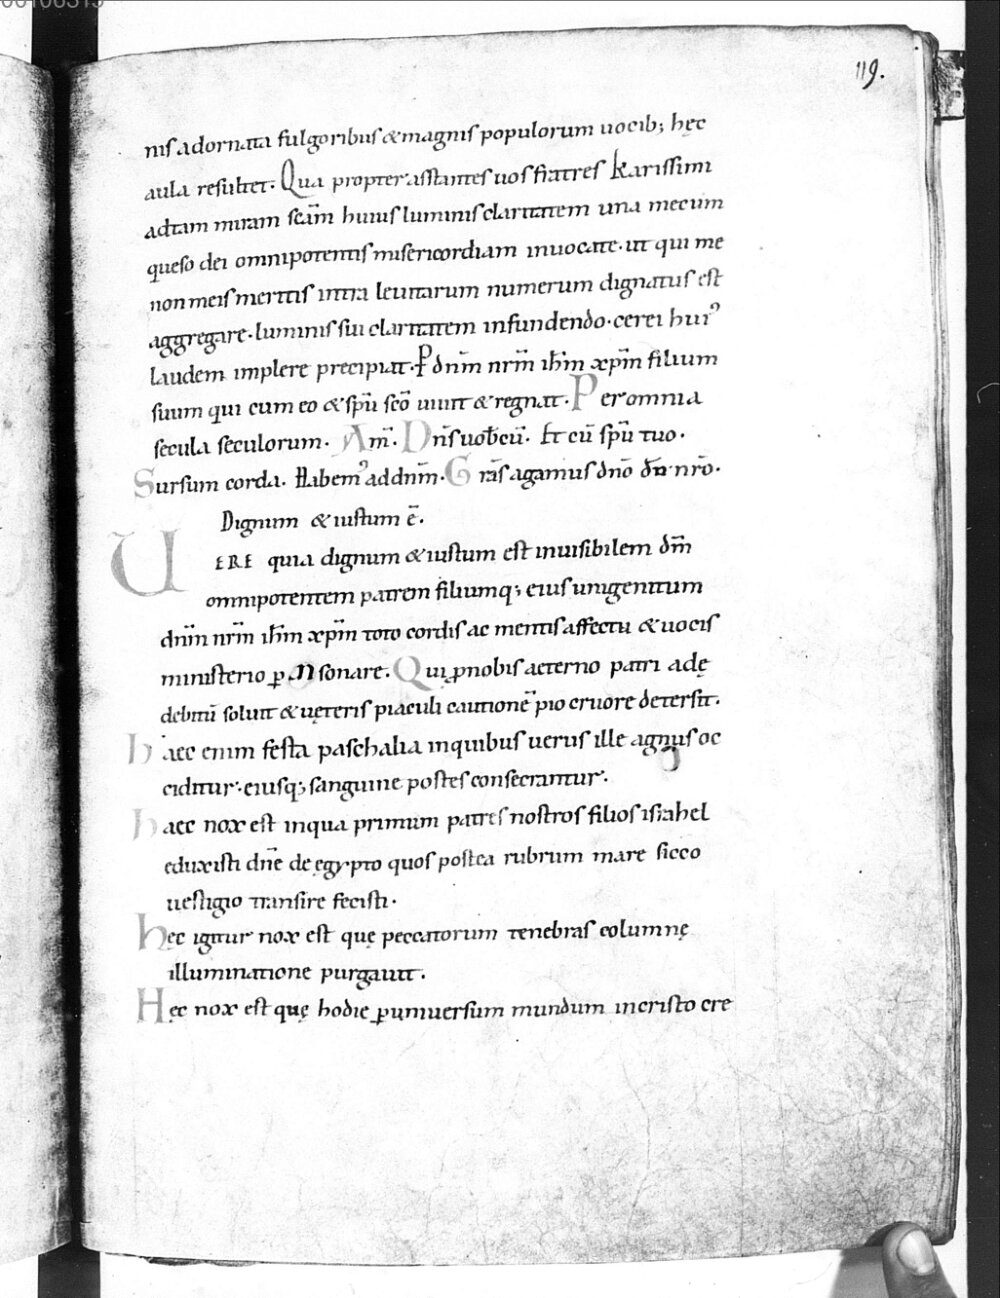 00106315
119.
nis adornata fulgoribus & magnis populorum uocib; hęc
aula resultet. Qua propter asstantes uos fratres karissimi
adtam miram scām huius luminis claritatem una mecum
queso dei omnipotentis misericordiam inuocate. ut qui me
non meis meritis intra leuitarum numerum dignatus est
aggregare. luminis sui claritatem infundendo. cerei huiꝰ
laudem implere precipiat. P̄ dn̄m nr̄m ih̄m xp̄m filium
suum qui cum eo & sp̄u sc̄o uiuit & regnat. Per omnia
secula seculorum. Am̄. Dn̄s uob̄cū. Et cū sp̄u tuo.
Sursum corda. Habemꝰ ad dn̄m. Gr̄as agamus dn̄o dō nr̄o.
Dignum & iustum ē.
UERE quia dignum & iustum est inuisibilem dm̄
omnipotentem patrem filiumq; eius unigenitum
dn̄m nr̄m ih̄m xp̄m toto cordis ac mentis affectu & uocis
ministerio ꝑsonare. Qui ꝓ nobis aeterno patri adę
debitū soluit & uęteris piaculi cautionē pio cruore detersit.
haec enim festa paschalia in quibus uerus ille agnus oc
ciditur. eiusq; sanguine postes consecrantur.
haec nox est in qua primum patres nostros filios israhel
eduxisti dn̄e de ęgypto quos postea rubrum mare sicco
uestigio transire fecisti.
hęc igitur nox est quę peccatorum tenebras columnę
illuminatione purgauit.
Hęc nox est quę hodie ꝑ uniuersum mundum in cristo cre